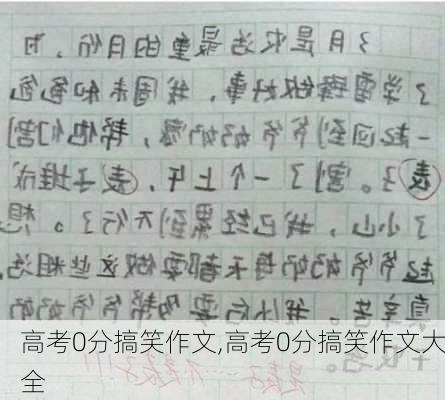 3月是农活最重的月份，为
了学雷锋做好事，我周末和爸爸
一起回到爷爷奶奶家，帮他们割
麦了。割了一个上午，麦子堆成
了小山，我已经累到不行了。想
起爷爷奶奶每天都要做这些粗活，
真辛苦。我以后要多帮爷爷奶奶
高考0分搞笑作文,高考0分搞笑作文大
全